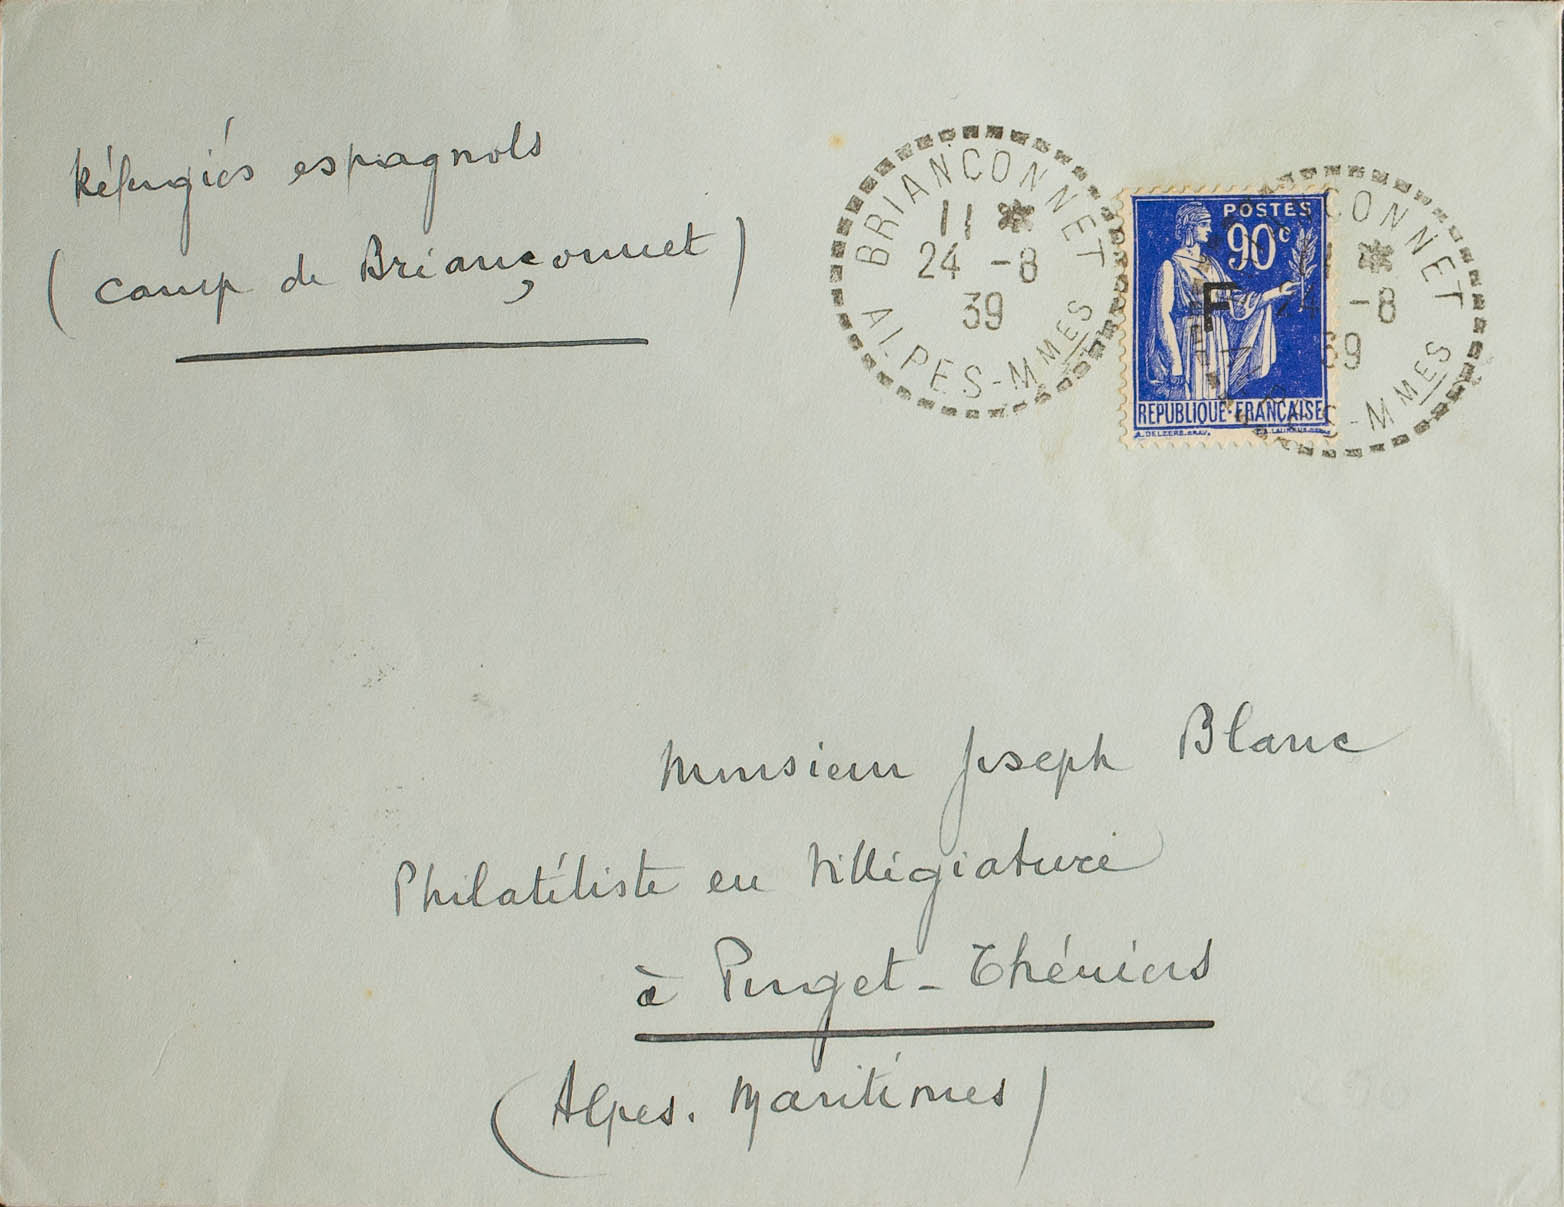 Réfugiés espagnols
(camp de Briançonnet)
BRIANÇONNET
11 *
24 -8
39
ALPES-MMES
POSTES
90c
F
REPUBLIQUE·FRANÇAISE
ÇONNET
*
24 -8
39
ES-MMES
Monsieur Joseph Blanc
Philatéliste en Villégiature
à Puget-Théniers
(Alpes. Maritimes)